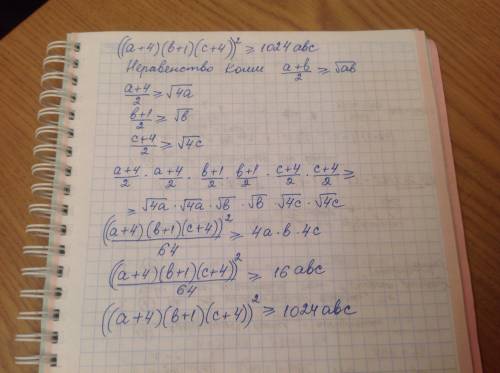 ((a+4)(b+1)(c+4))² ≥ 1024abc
Неравенство Коши (a+b)/2 ≥ √ab
(a+4)/2 ≥ √4a
(b+1)/2 ≥ √b
(c+4)/2 ≥ √4c
(a+4)/2 · (a+4)/2 · (b+1)/2 · (b+1)/2 · (c+4)/2 · (c+4)/2 ≥
≥ √4a · √4a · √b · √b · √4c · √4c
((a+4)(b+1)(c+4))²/64 ≥ 4a·b·4c
((a+4)(b+1)(c+4))²/64 ≥ 16abc
((a+4)(b+1)(c+4))² ≥ 1024abc